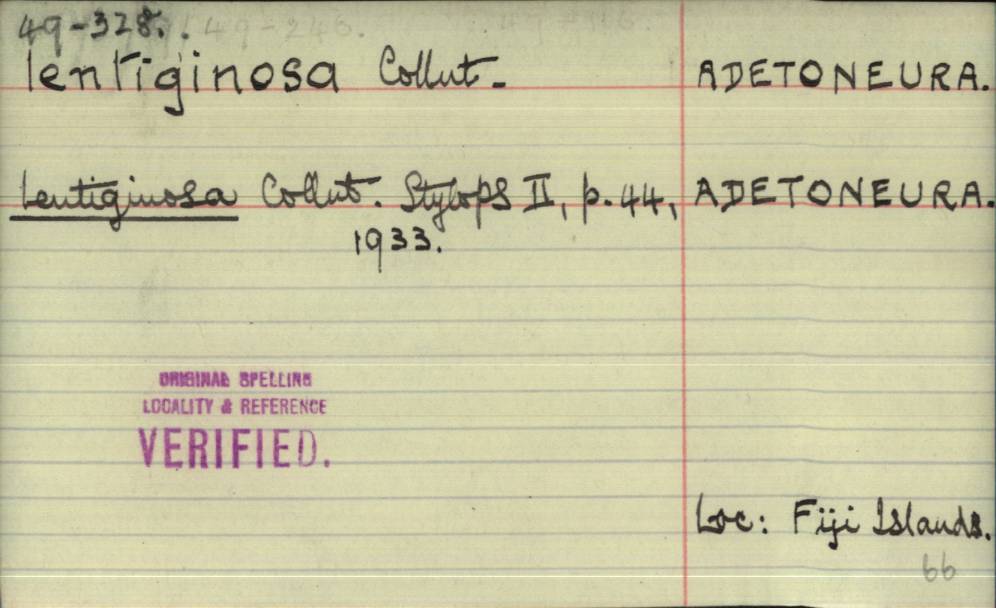 49-328.
lentiginosa Collnt. ADETONEURA.
lentiginosa Collnt. Stylops II, p. 44, ADETONEURA.
1933.
ORIGINAL SPELLING
LOCALITY & REFERENCE
VERIFIED.
Loc: Fiji Islands.
66